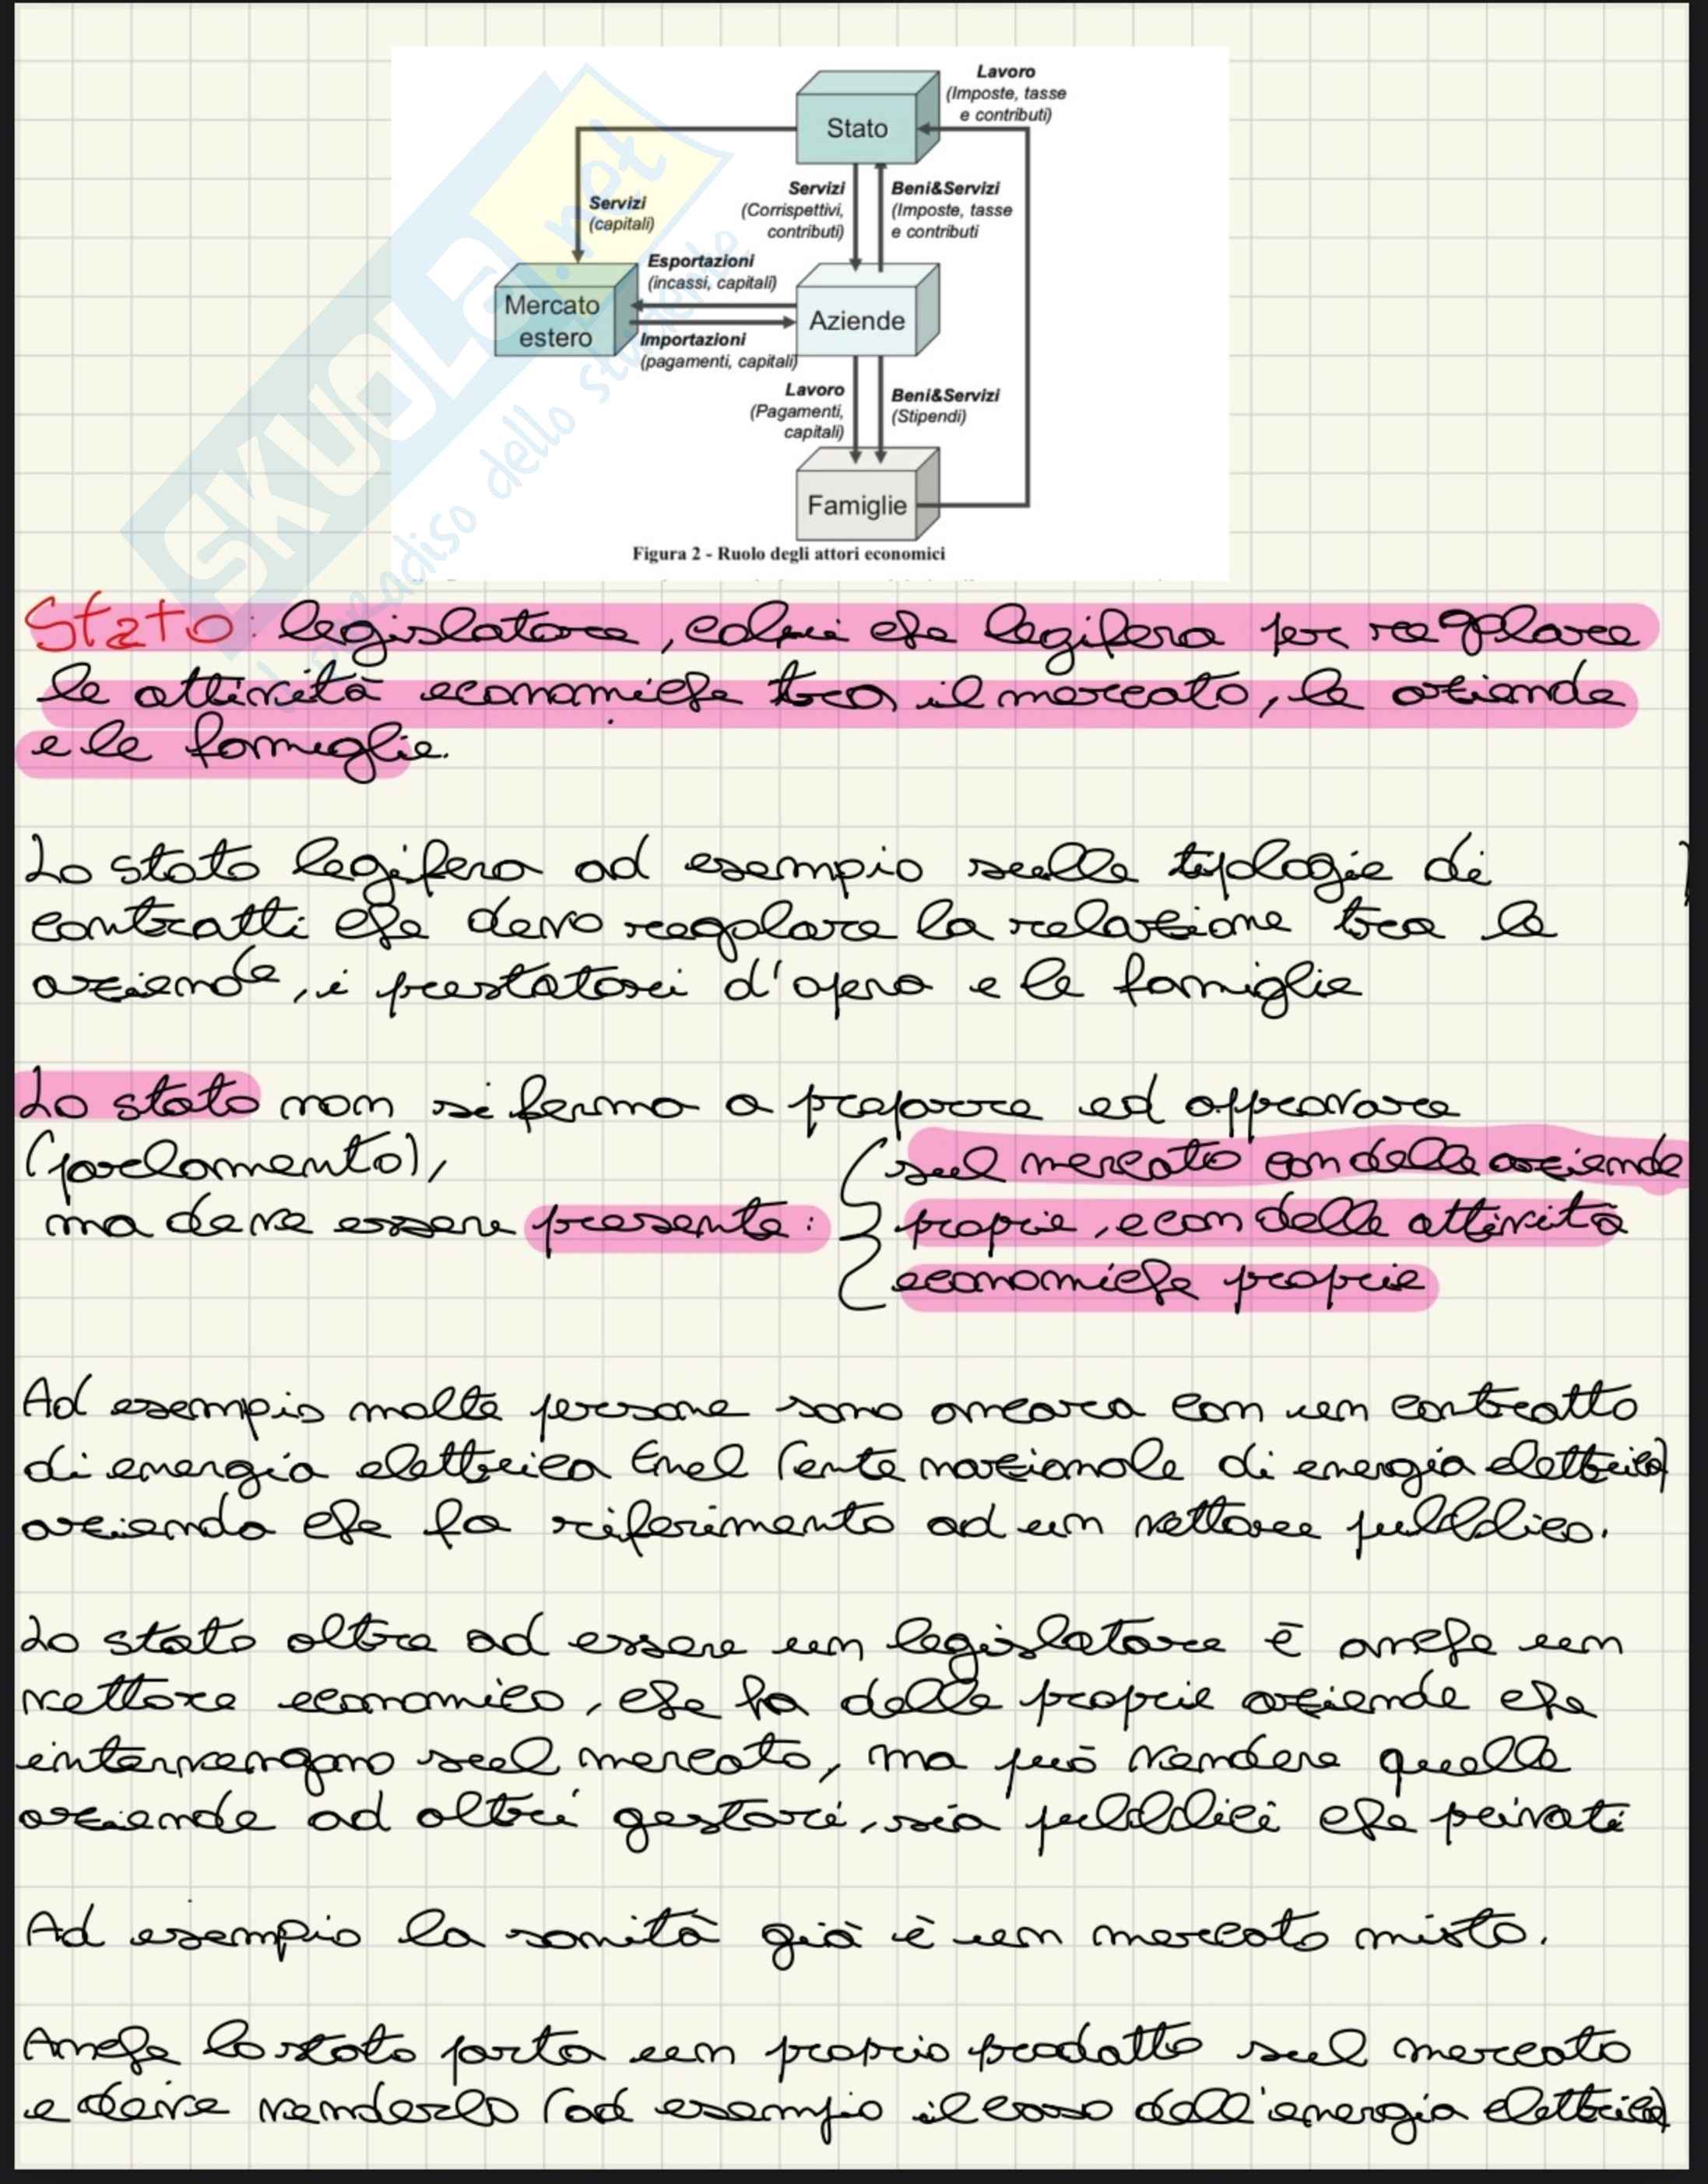 Lavoro
(Imposte, tasse
e contributi)
Stato
Servizi
(capitali)
Servizi
(Corrispettivi,
contributi)
Beni&Servizi
(Imposte, tasse
e contributi
Esportazioni
(incassi, capitali)
Mercato
estero
Aziende
Importazioni
(pagamenti, capitali)
Lavoro
(Pagamenti,
capitali)
Beni&Servizi
(Stipendi)
Famiglie
Figura 2 - Ruolo degli attori economici
SKUOLA.net
dello studente
Stato: legislatore, colui che legifera per regolare
le attività economiche tra il mercato, le aziende
e le famiglie.
Lo stato legifera ad esempio sulle tipologie di
contratti che devo regolare la relazione tra le
aziende, i prestatori d'opera e le famiglie
Lo stato non si ferma a proporre ed approvare
(parlamento),
ma deve essere presente:
sul mercato con delle aziende
proprie, e con delle attività
economiche proprie
Ad esempio molte persone sono ancora con un contratto
di energia elettrica Enel (ente nazionale di energia elettrica)
azienda che fa riferimento ad un vettore pubblico.
Lo stato oltre ad essere un legislatore è anche un
vettore economico, che ha delle proprie aziende che
intervengano sul mercato, ma può vendere quelle
aziende ad altri gestori, sia pubblici che privati
Ad esempio la sanità già è un mercato misto.
Anche lo stato porta un proprio prodotto sul mercato
e deve venderlo (ad esempio il caso dell'energia elettrica)